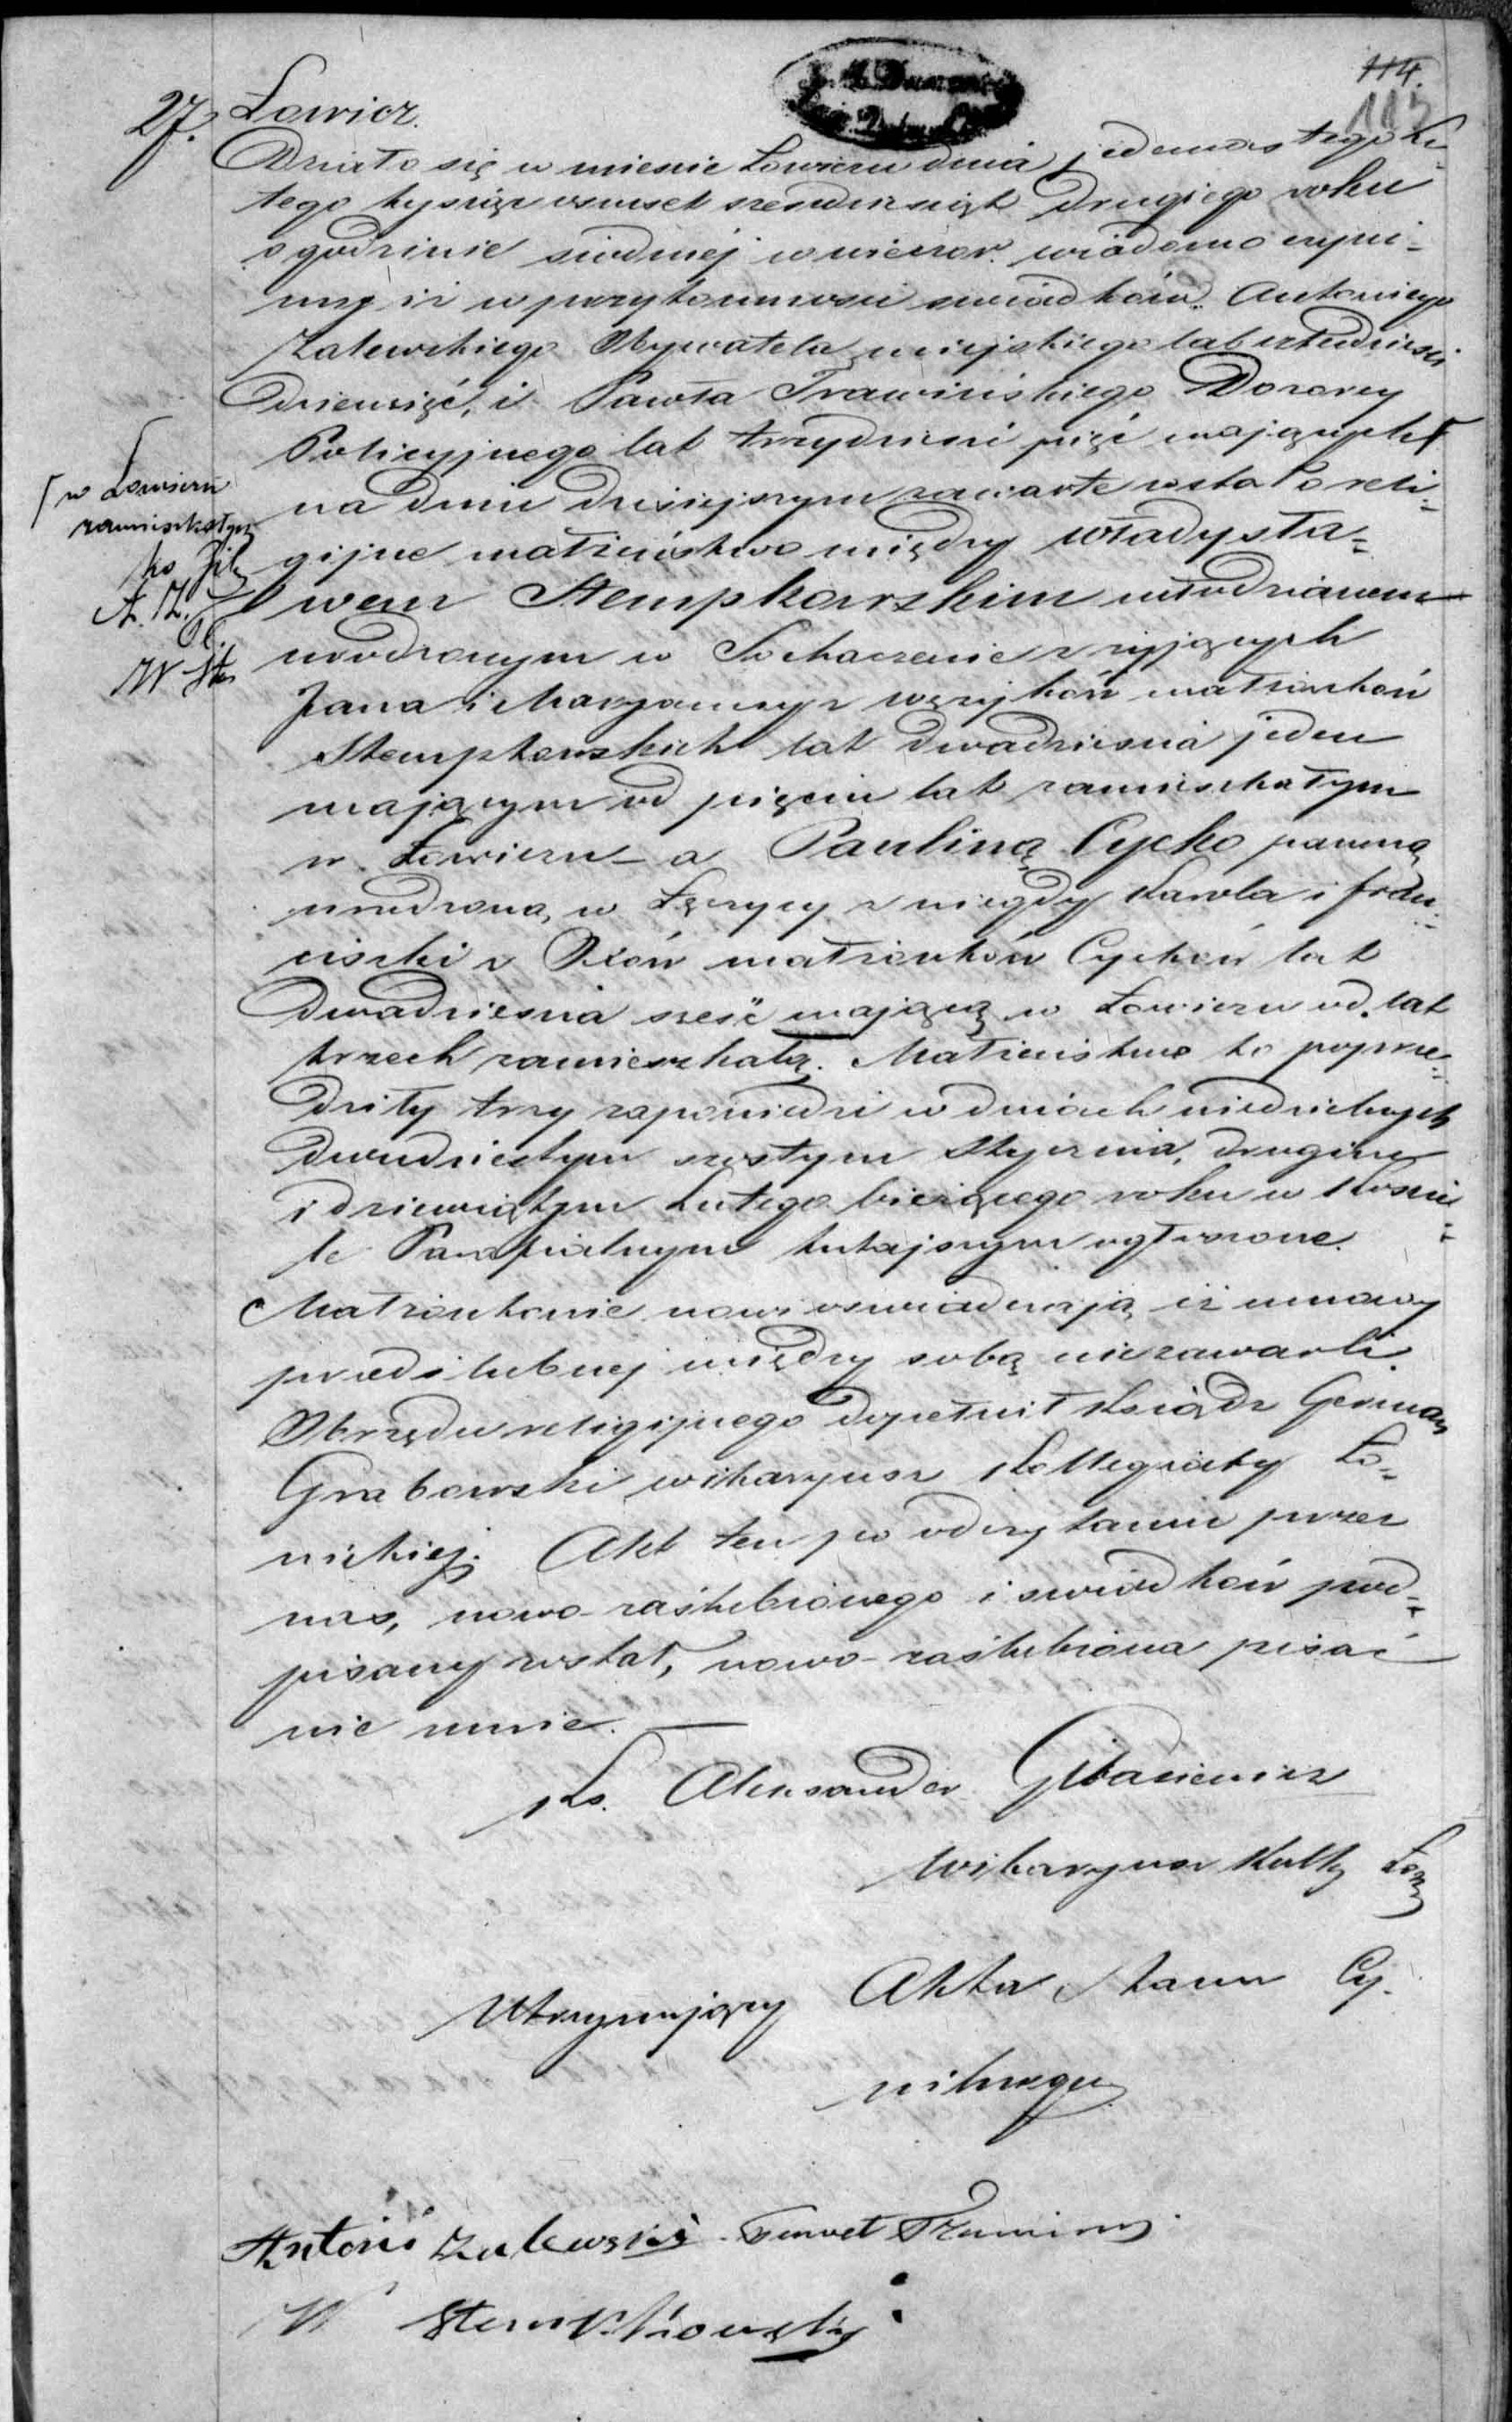 114.
115
27. Łowicz.
Działo się w miescie Łowiczu dnia jedenastego Lu-
tego tysiąc osmset szesdziesiąt drugiego roku
o godzinie siodmej wieczor. wiadomo czyni-
my iż w przytomnosci swiadków. Antoniego
Zalewskiego Obywatela miejskiego lat czterdziesci
dziewięć, i Pawła Trawińskiego Dozorcy
Policyjnego lat trzydziesci pięć mających
na dniu dzisiejszym zawarte zostało reli-
gijne małżeństwo między Władysła-
wem Stempkowskim młodzianem
urodzonym w Sochaczewie z żyjących
Jana i Maryanny z małżonków
Stempkowskich lat dwadziescia jeden
mającym od pięciu lat zamieszkałym
w Łowiczu – a Pauliną Cycko panną
urodzoną w Łęczycy z niegdy Karola i Fran-
ciszki z małżonków Cycków lat
dwadziescia sześć mającą w Łowiczu od lat
trzech zamieszkałą. Małżeństwo to poprze-
dziły trzy zapowiedzi w dniach niedzielnych
dwudziestym szostym Stycznia, drugim
i dziewiątym Lutego bieżącego roku w Koscie-
le Parafialnym tutejszym ogłoszone.
Małżonkowie nowi oswiadczają iż umowy
przedslubnej między sobą niezawarli.
Obrzędu religijnego dopełnił Ksiądz German
Grabowski wikaryusz Kollegiaty Ło-
wickiej. Akt ten po odczytaniu przez
nas, nowo-zaślubionego i swiadków pod-
pisany został, nowo-zaślubiona pisać
nie umie. —
w Łowiczu
zamieszkałych
A. Z.
W Ste
Ks. Aleksander
Wikaryusz Kolleg Łow
Utrzymujący Akta Stanu Cy-
wilnego
Antoni Zalewski Paweł
W Stempkowski